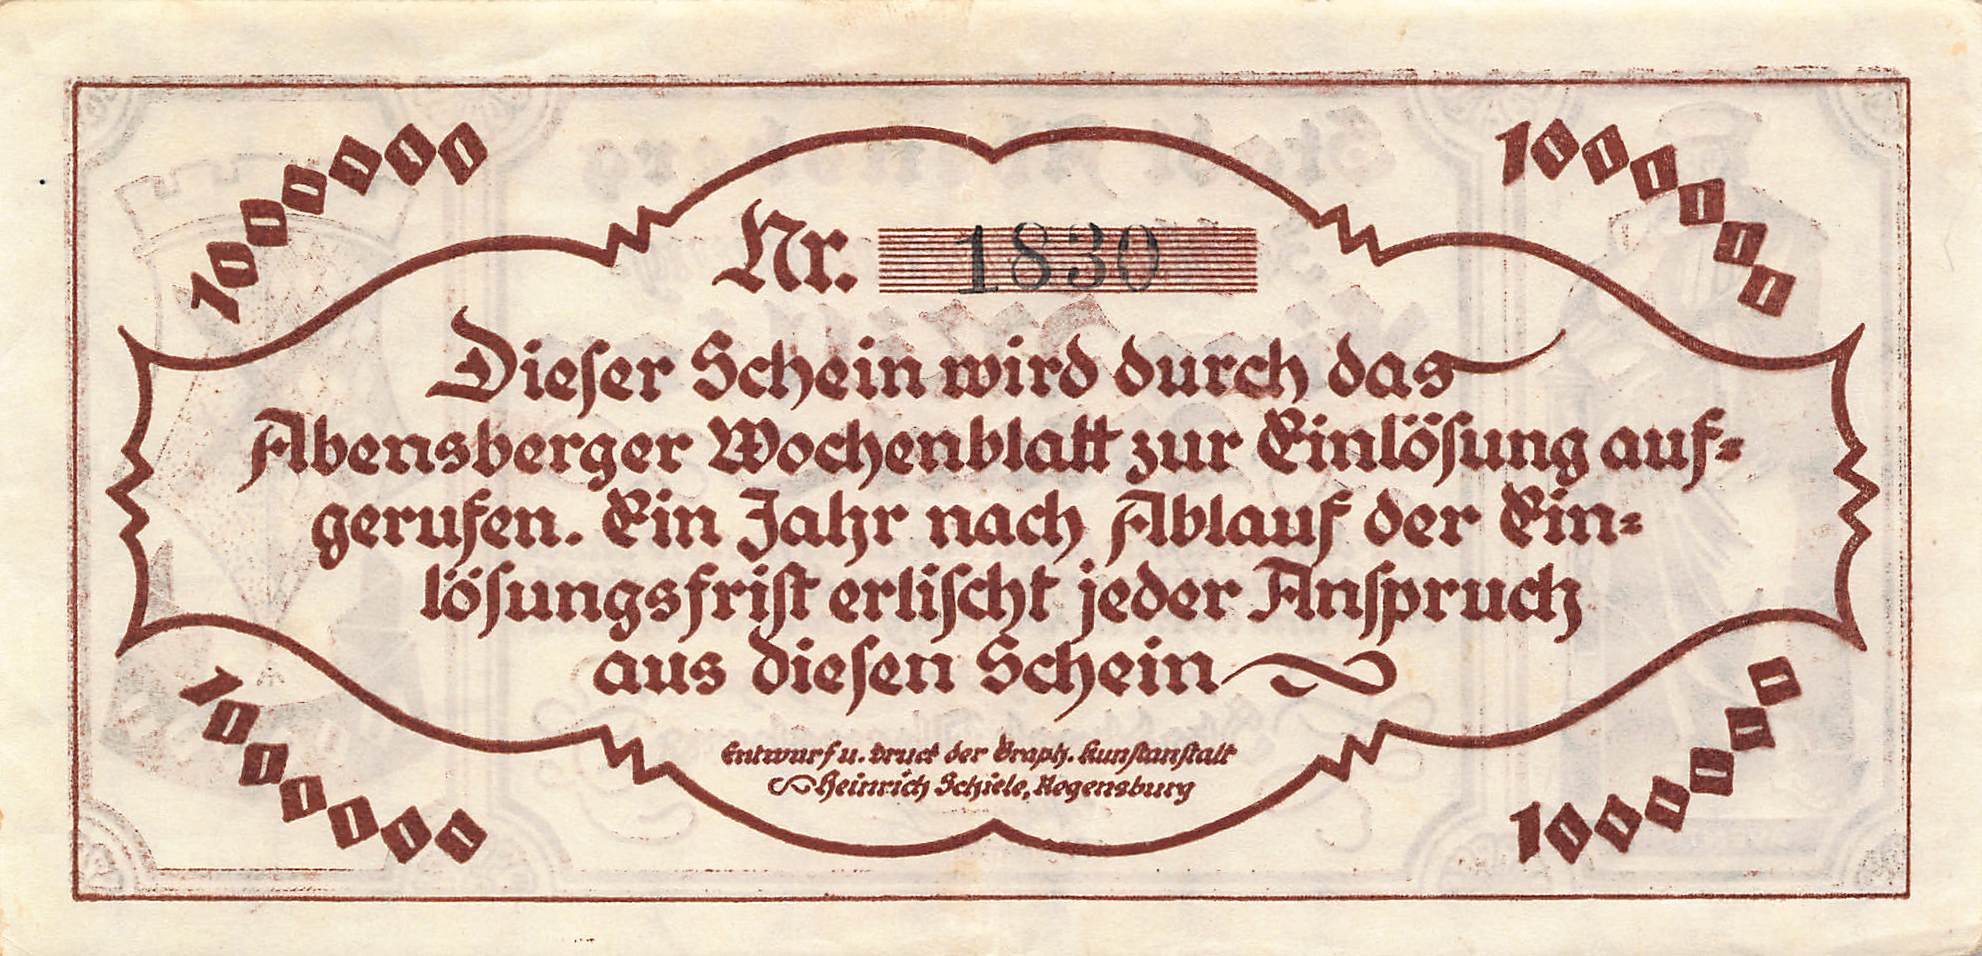 1000000
1000000
Nr. 1830
Dieser Schein wird durch das
Abensberger Wochenblatt zur Einlösung auf=
gerufen. Ein Jahr nach Ablauf der Ein=
lösungsfrist erlischt jeder Anspruch
aus diesen Schein
Entwurf u. Druck der Graph. Kunstanstalt
Heinrich Schiele, Regensburg
1000000
1000000